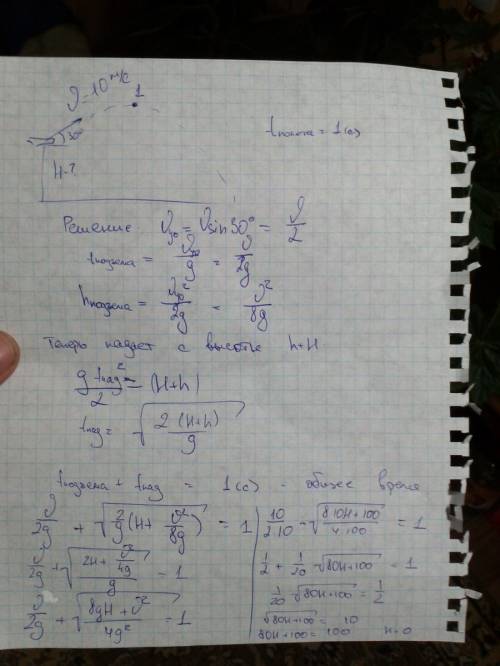 ϑ=10 м/с
1
30°
H-?
tполета = 1(с)
Решение ϑy0 = ϑsin30° = ϑ/2
tподъема = ϑy0/g = ϑ/2g
hподъема = ϑy0²/2g = ϑ²/8g
Теперь падает с высоты h+H
g tпад²/2 = (H+h)
tпад = √(2(H+h)/g)
tподъема + tпад = 1(с) - общее время
ϑ/2g + √(2/g(H+ϑ²/8g)) = 1
ϑ/2g + √((2H+ϑ²/4g)/g) = 1
ϑ/2g + √((8gH+ϑ²)/4g²) = 1
10/2·10 + √((8·10H+100)/4·100) = 1
1/2 + 1/20 √(80H+100) = 1
1/20 √(80H+100) = 1/2
√(80H+100) = 10
80H+100 = 100 H=0